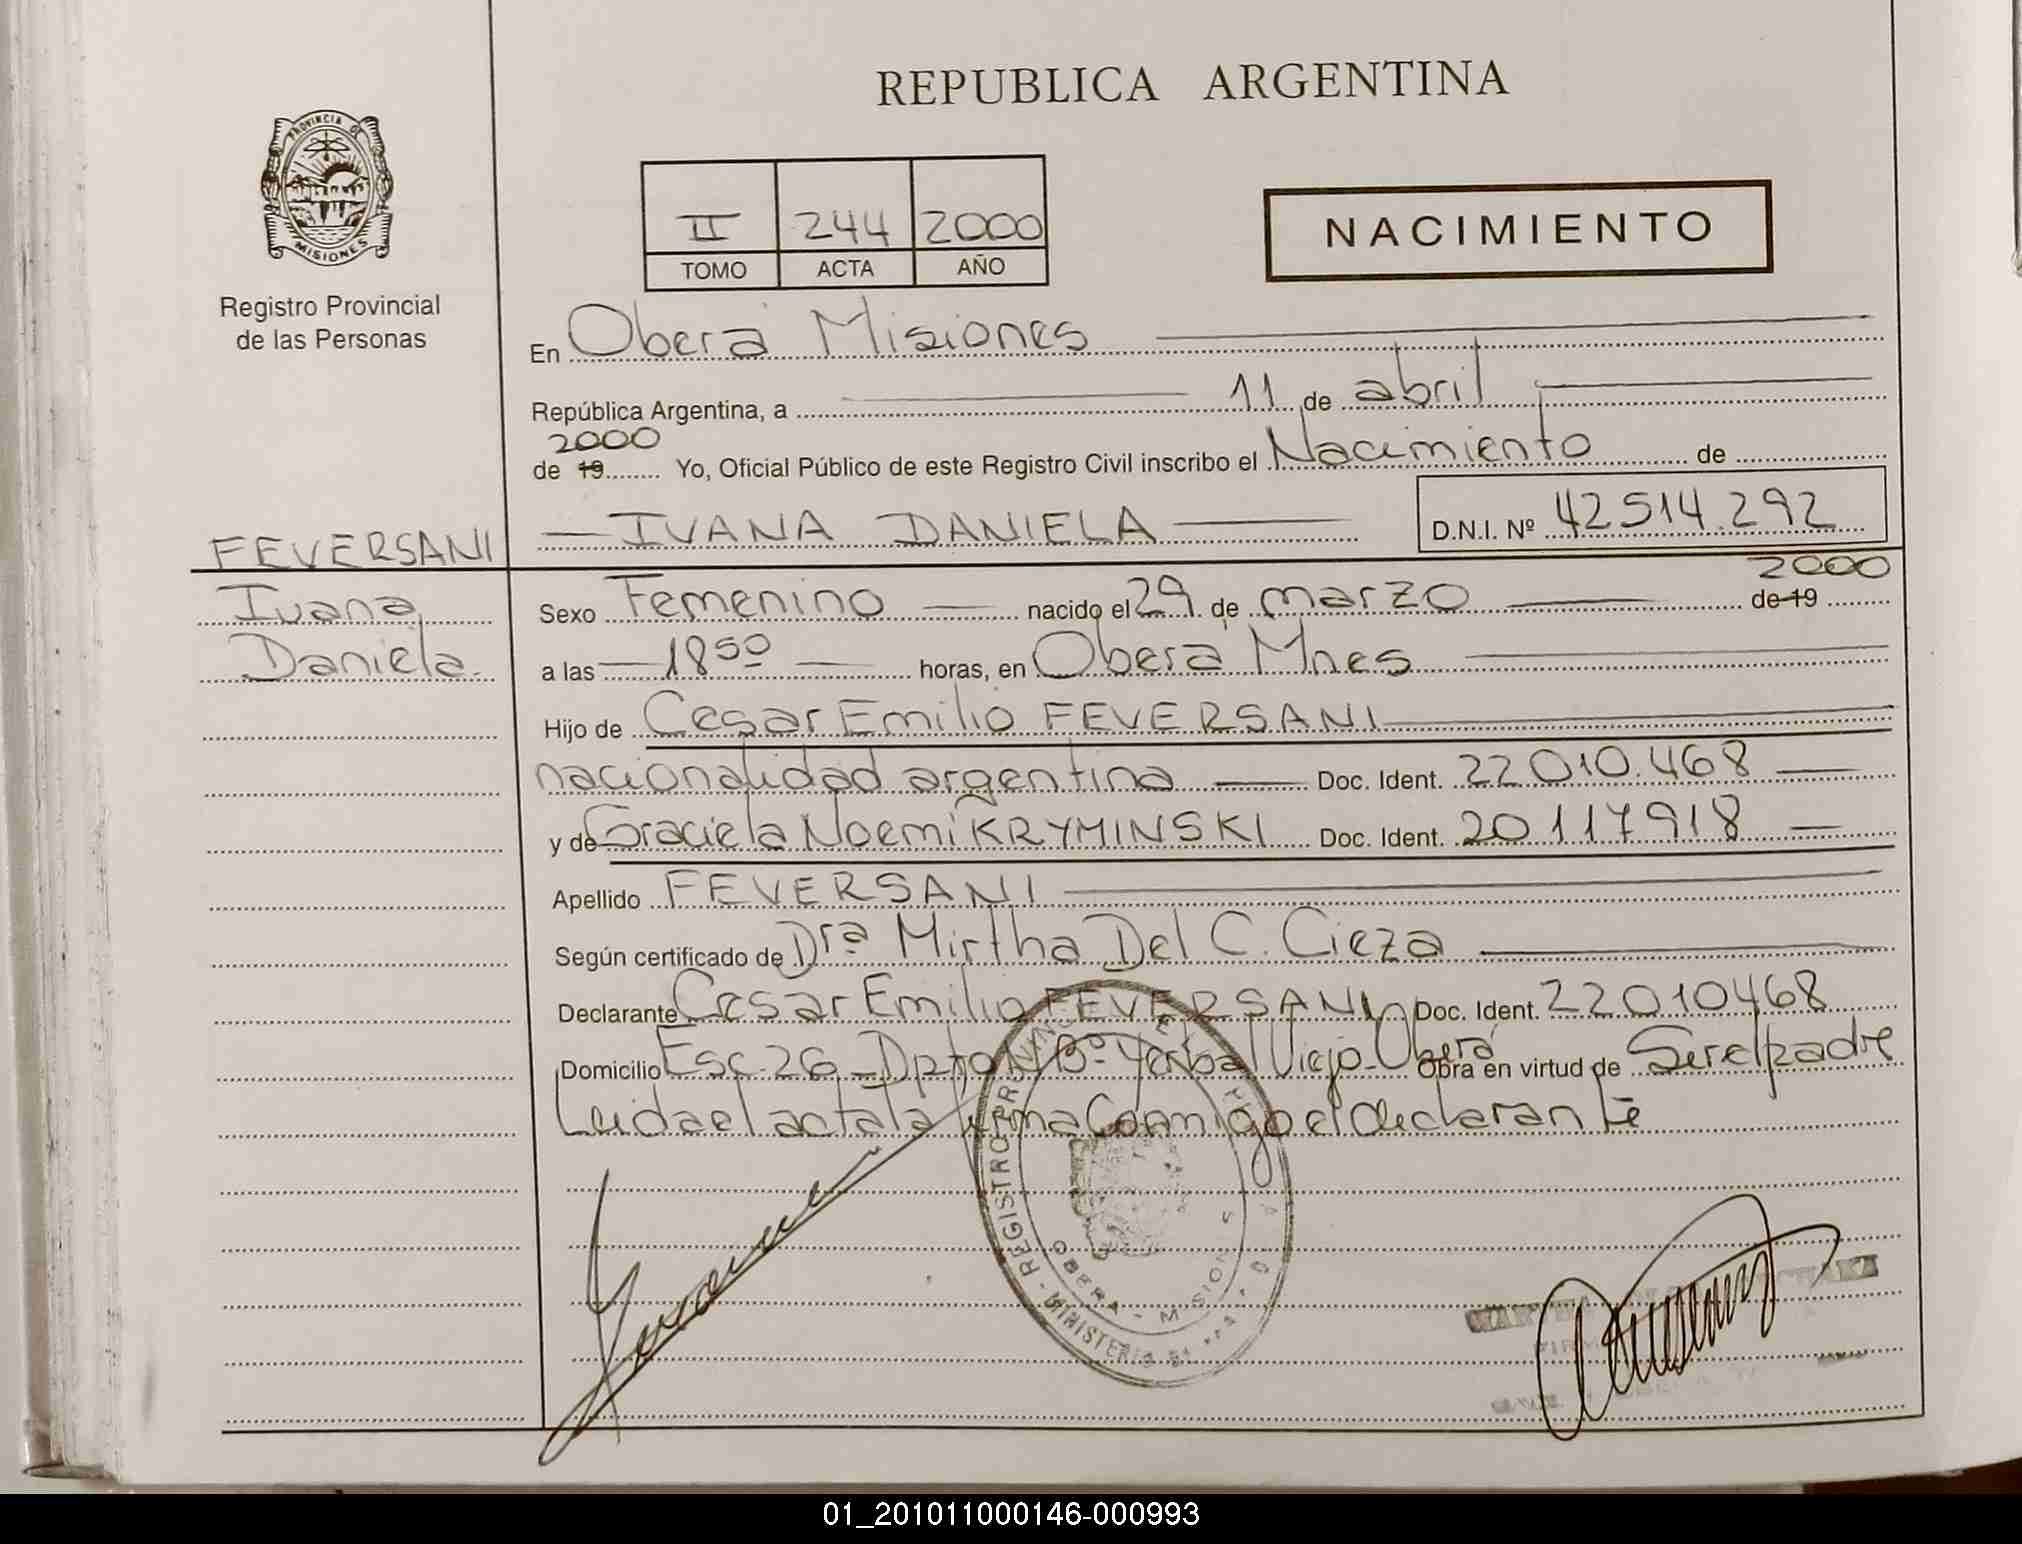 REPUBLICA ARGENTINA
PROVINCIA DE
MISIONES
Registro Provincial
de las Personas
II 244 2000
TOMO ACTA AÑO
NACIMIENTO
En Oberá Misiones
República Argentina, a 11 de abril
2000
de 19 Yo, Oficial Público de este Registro Civil inscribo el Nacimiento de
FEVERSANI IVANA DANIELA D.N.I. Nº 42514.292
2000
Ivana Sexo Femenino nacido el 29 de marzo de 19
Daniela. a las 18 50 horas, en Oberá Mnes
Hijo de Cesar Emilio FEVERSANI
nacionalidad argentina Doc. Ident. 22010.468
y de Graciela Noemi KRYMINSKI Doc. Ident. 20117918
Apellido FEVERSANI
Según certificado de Dra Mirtha Del C. Cieza
Declarante Cesar Emilio FEVERSANI Doc. Ident. 22010468
Domicilio Esc. 26 Dpto N Bº Yerbal Viejo Oberá Obra en virtud de Ser el padre
Leida el acta la firma Conmigo el declarante
REGISTRO PROVINCIAL
OBERA - MISIONES
MINISTERIO
01_201011000146-000993